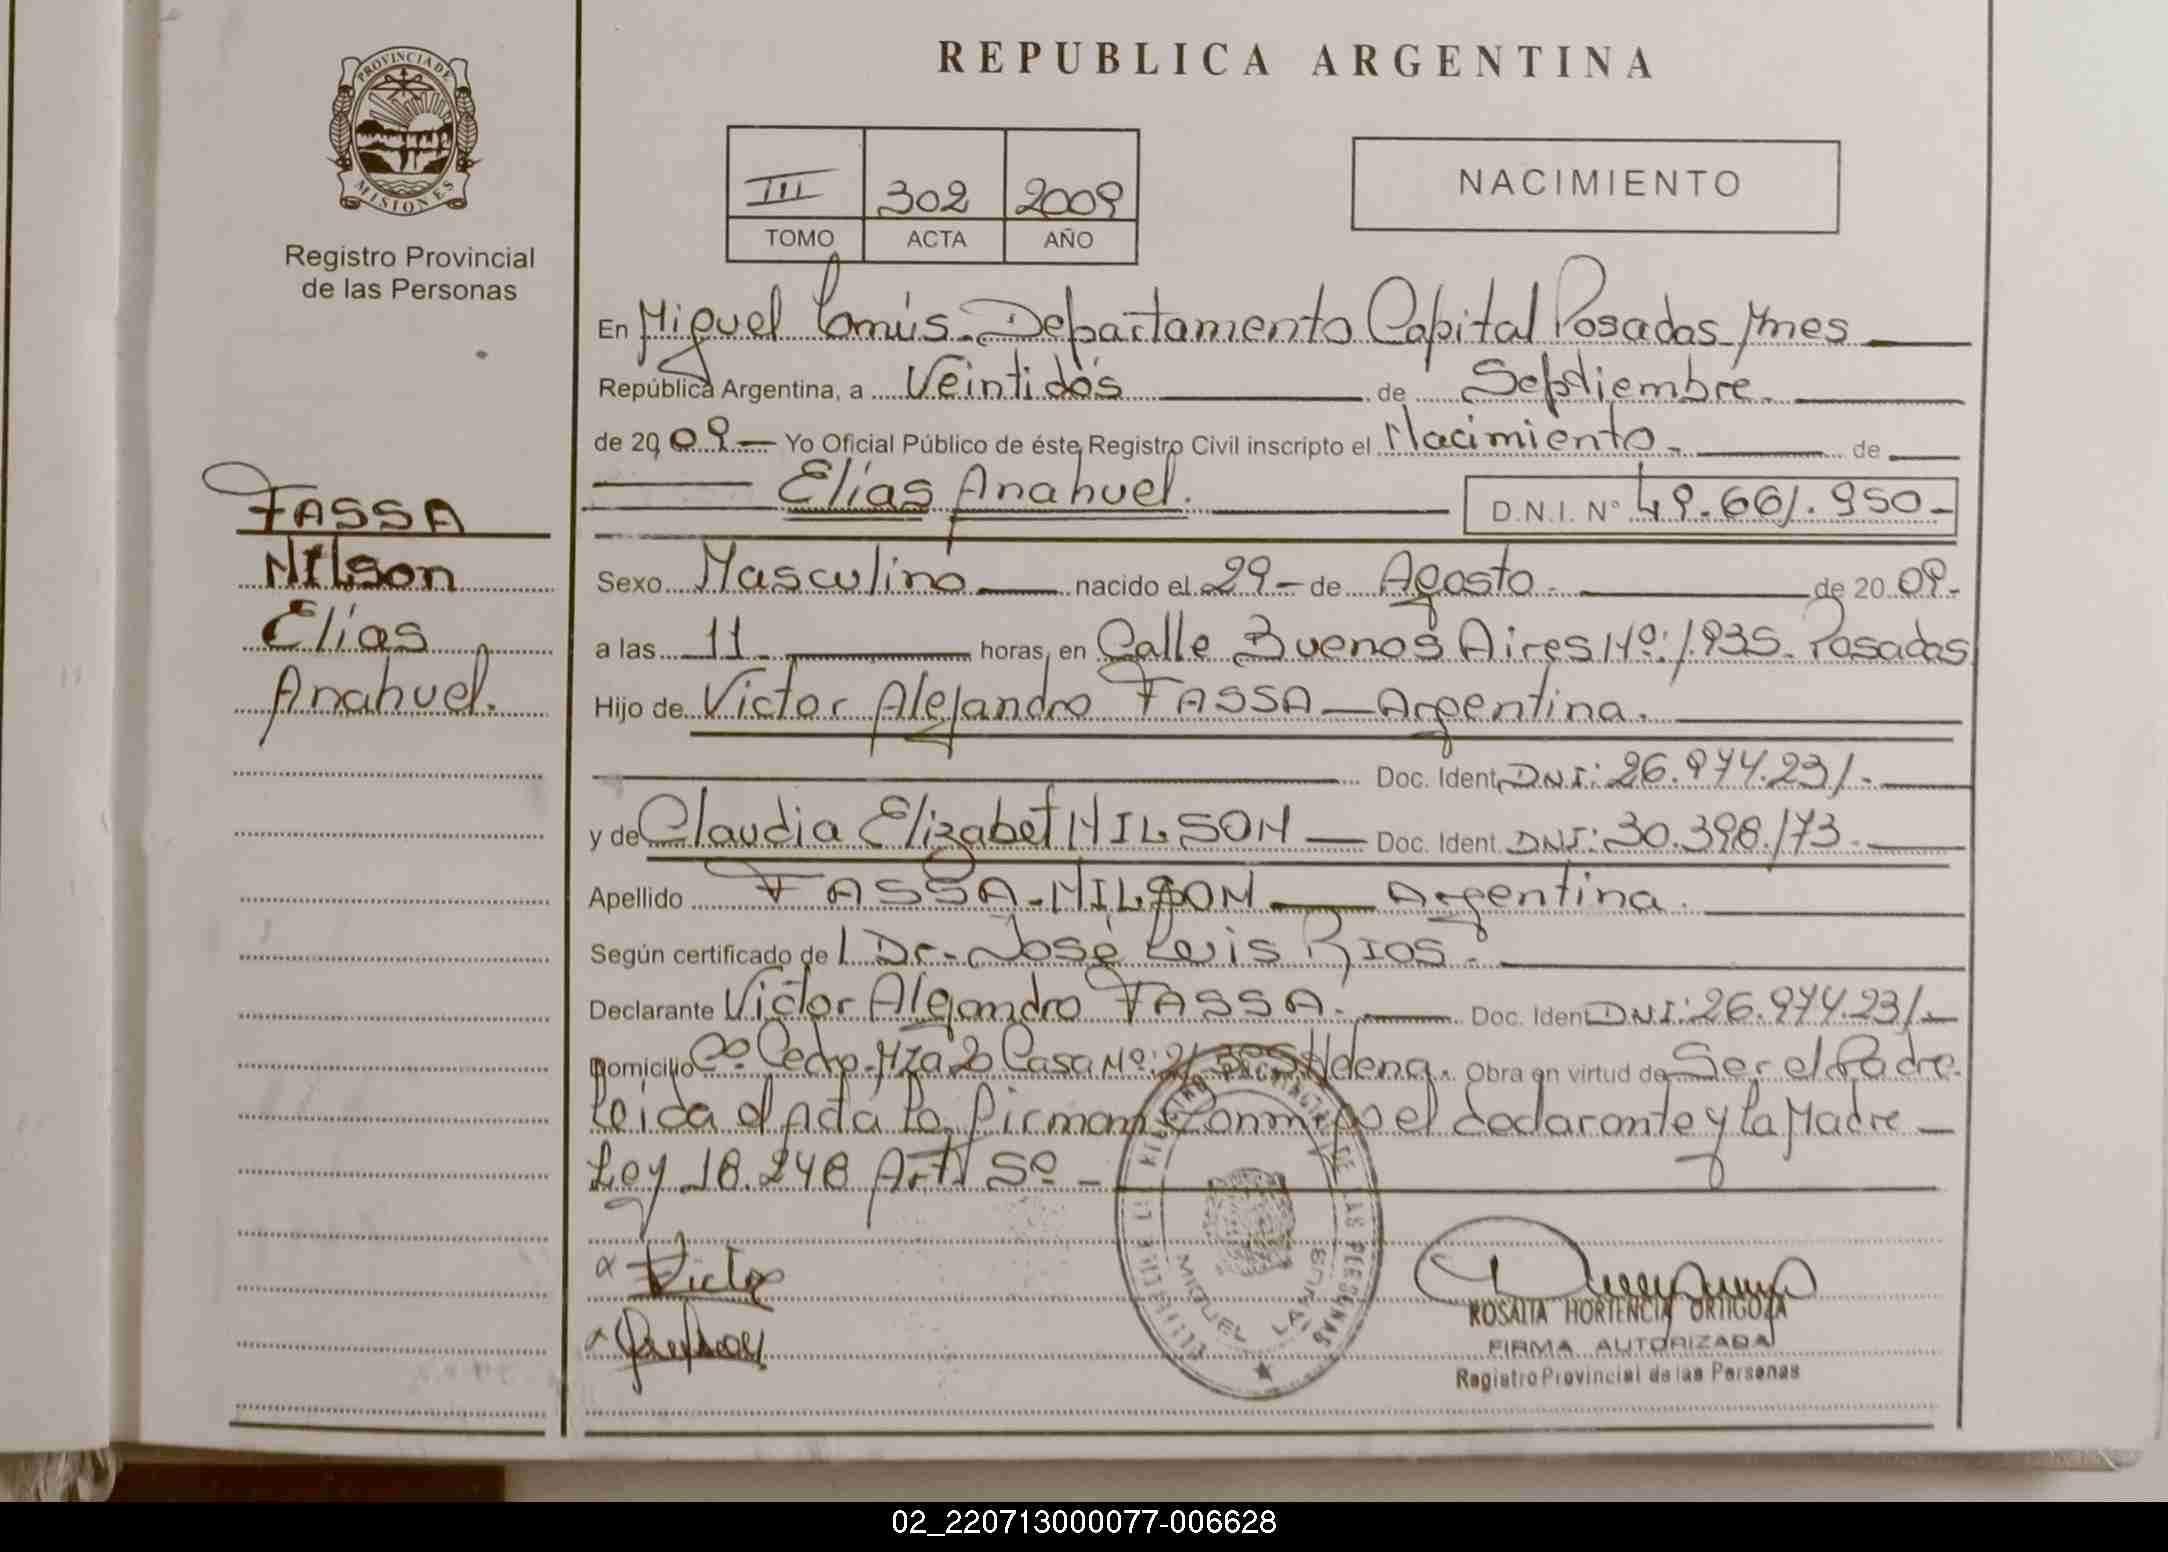 PROVINCIA DE
MISIONES
Registro Provincial
de las Personas
FASSA
Nilson
Elías
Anahuel.
REPUBLICA ARGENTINA
III 302 2009
TOMO ACTA AÑO
NACIMIENTO
En Miguel Lanús - Departamento Capital Posadas Mnes
República Argentina, a Veintidós de Septiembre
de 2009 Yo Oficial Público de éste Registro Civil inscripto el Nacimiento - de
Elías Anahuel. D.N.I. Nº 49.661.950-
Sexo Masculino nacido el 29 - de Agosto - de 2009-
a las 11 horas, en Calle Buenos Aires Nº: 1.935. Posadas
Hijo de Victor Alejandro FASSA - Argentina.
Doc. Ident. DNI: 26.974.231.-
y de Claudia Elizabet NILSON - Doc. Ident. DNI: 30.398.173 -
Apellido FASSA-NILSON Argentina.
Según certificado de Dr. José Luis RIOS.
Declarante Victor Alejandro FASSA. Doc. Iden DNI: 26.974.231-
Domicilio Cº Cedro - Mza 20 Casa Nº: Obra en virtud de Ser el Padre.
Leida el Acta la firman conmigo el declarante y la Madre -
Ley 18.248 Art. 5º -
Victor
REGISTRO PROVINCIAL DE LAS PERSONAS
MIGUEL LANUS
ROSALIA HORTENCIA ORTIGOZA
FIRMA AUTORIZADA
Registro Provincial de las Personas
02_220713000077-006628